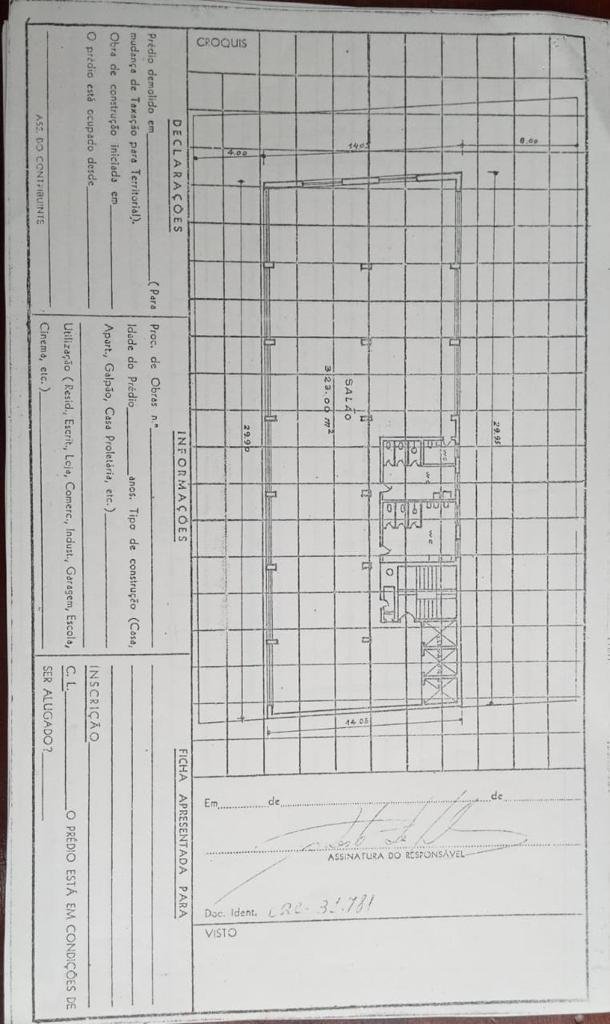 CROQUIS
4.00
14.05
8.00
29.95
SALÃO
323.00 m²
WC
WC
WC
29.90
14.05
Em de de
ASSINATURA DO RESPONSÁVEL
Doc. Ident.
VISTO
DECLARAÇÕES
Prédio demolido em (Para
mudança de Taxação para Territorial).
Obra de construção iniciada em
O prédio está ocupado desde
ASS. DO CONTRIBUINTE
INFORMAÇÕES
Proc. de Obras n.º
Idade do Prédio anos. Tipo de construção (Casa,
Apart., Galpão, Casa Proletária, etc.)
Utilização (Resid., Escrit., Loja, Comerc., Indust., Garagem, Escola,
Cinema, etc.)
FICHA APRESENTADA PARA
INSCRIÇÃO
C. L. O PRÉDIO ESTÁ EM CONDIÇÕES DE
SER ALUGADO?